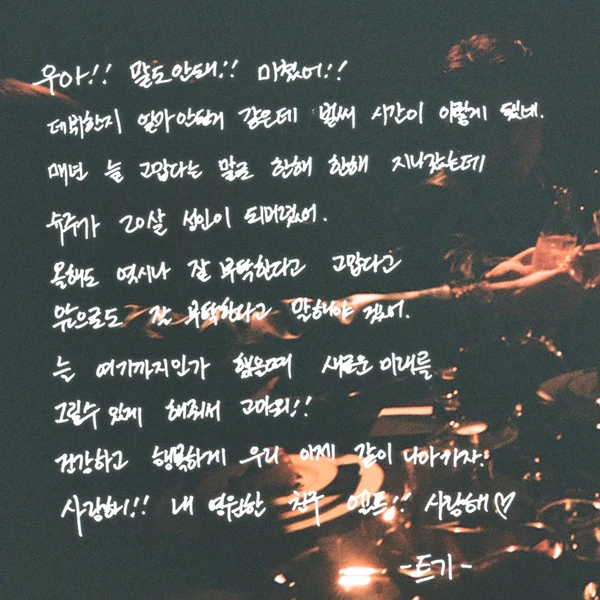 우아!! 말도안돼!! 미쳤어!!
데뷔한지 얼마안된거 같은데 벌써 시간이 이렇게 됐네.
매년 늘 고맙다는 말로 한해 한해 지나갔는데
슈주가 20살 성인이 되버렸어.
올해도 역시나 잘 부탁한다고 고맙다고
앞으로도 잘 부탁한다고 말해야 겠어.
늘 여기까지인가 했을때 새로운 미래를
그릴수 있게 해줘서 고마워!!
건강하고 행복하게 우리 이제 같이 나아가자.
사랑해!! 내 영원한 친구 엘프!! 사랑해♡
-트기-